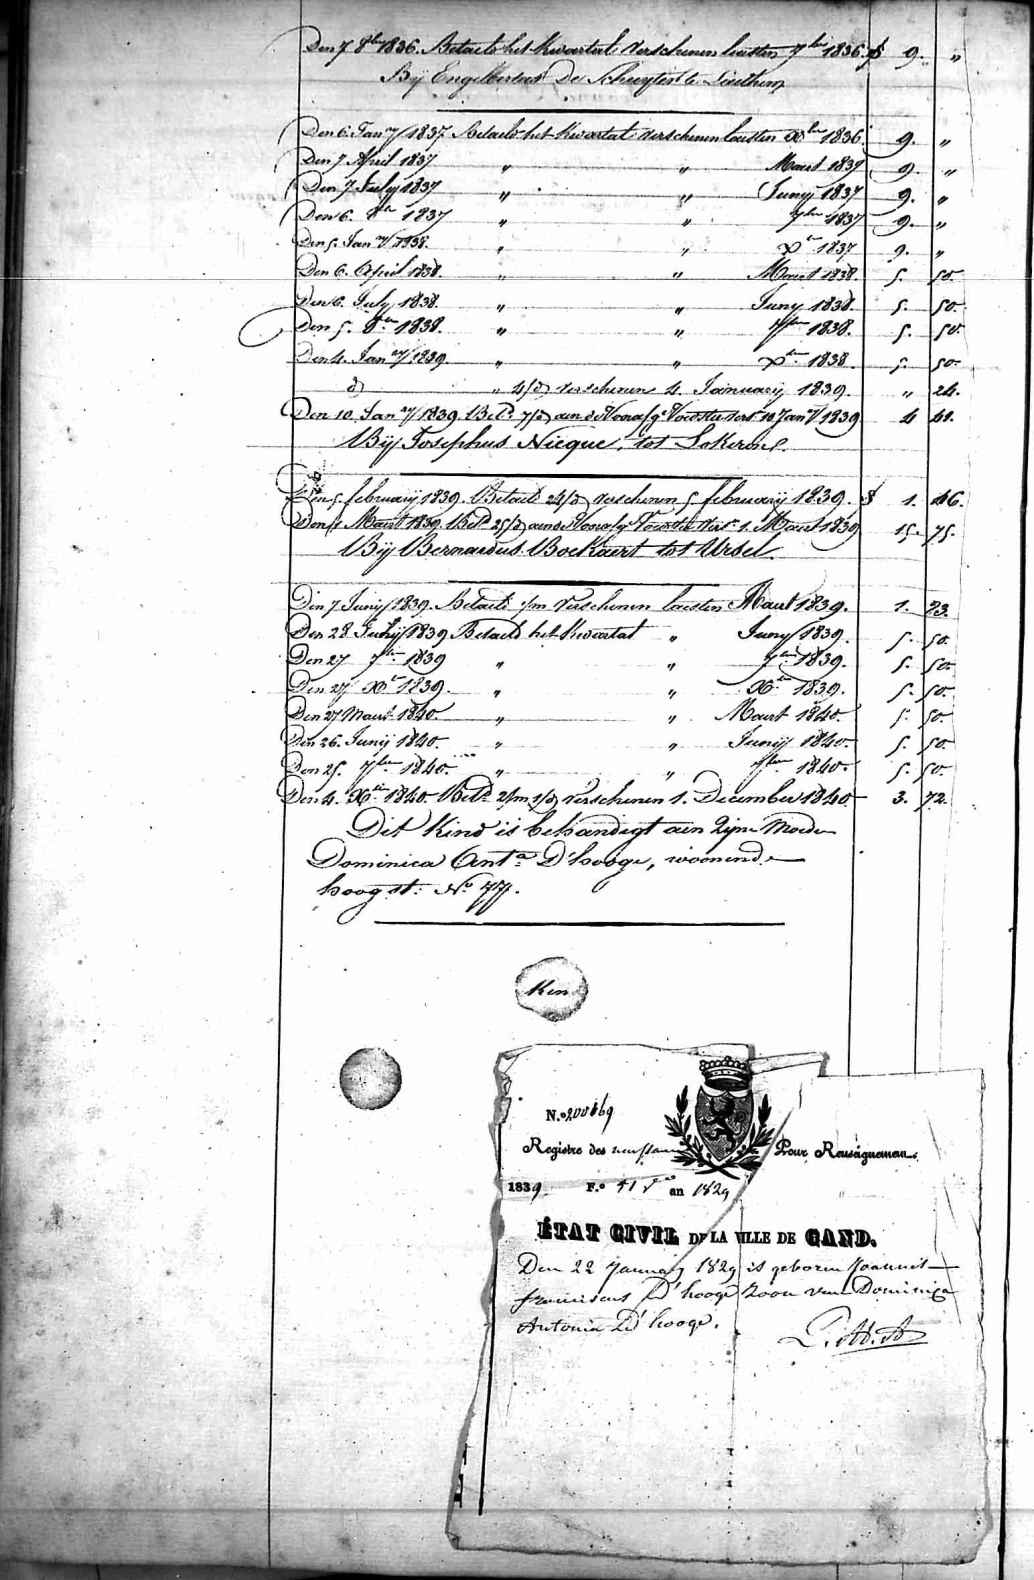 Den 7 8bre 1836. Betaelt het kwartal verschenen laesten 7bre 1836 9. „
Bij Engelbertus De
Den 6. Jany 1837. Betaelt het kwartal verschenen laesten Xbre 1836. 9. „
Den 7 April 1837 „ „ Maart 1837 9. „
Den 7 July 1837 „ „ Juny 1837 9. „
Den 6. 8bre 1837 „ „ 7bre 1837 9. „
Den 5. Jany 1938. „ „ Xbre 1837 9. „
Den 6. April 1838. „ „ Maart 1838. 5. 50.
Den 6. July 1838. „ „ Juny 1838. 5. 50.
Den 5. 8bre 1838. „ „ 7bre 1838. 5. 50.
Den 4. Jany 1839. „ „ Xbre 1838. 5. 50.
„ 4/d verschenen 4. January 1839. „ 24.
Den 10. Jany 1839. 10 Jany 1839 4 41.
Bij Josephus Nicque, tot Lokeren.
Den 5. february 1839. Betaelt verschenen 5 february 1839. 1. 46.
Maart 1839. 1. Maart 1839 15. 75.
Bij Bernardus Boekaert tot Ursel.
Den 7 Junij 1839. Betaelt 1/m verschenen laesten Maart 1839. 1. 23.
Den 28. July 1839 Betaelt het kwartal „ Juny 1839. 5. 50.
Den 27 7bre 1839 „ „ 7bre 1839. 5. 50.
Den 27 Xbre 1839. „ „ Xbre 1839. 5. 50.
Den 27 Maart 1840. „ „ Maart 1840. 5. 50.
Den 26. Junij 1840. „ „ Junij 1840. 5. 50.
Den 25. 7bre 1840. „ „ 7bre 1840. 5. 50.
Den 4. Xbre 1840. Bet. 2/m 1/d verschenen 1. December 1840 3. 72.
Dit kind is behandigt aen zijne Moeder
Dominica Anta D'hooge, woonende
hoogst: No 77.
Ken
N.o
Registre des naissances Pour Renseignemen.
1839. F.o 41 vo an 1829
ÉTAT CIVIL DE LA VILLE DE GAND.
Den 22 January 1829 is geboren Joannes
franciscus D'hooge zoon van Dominica
Antonia D'hooge.